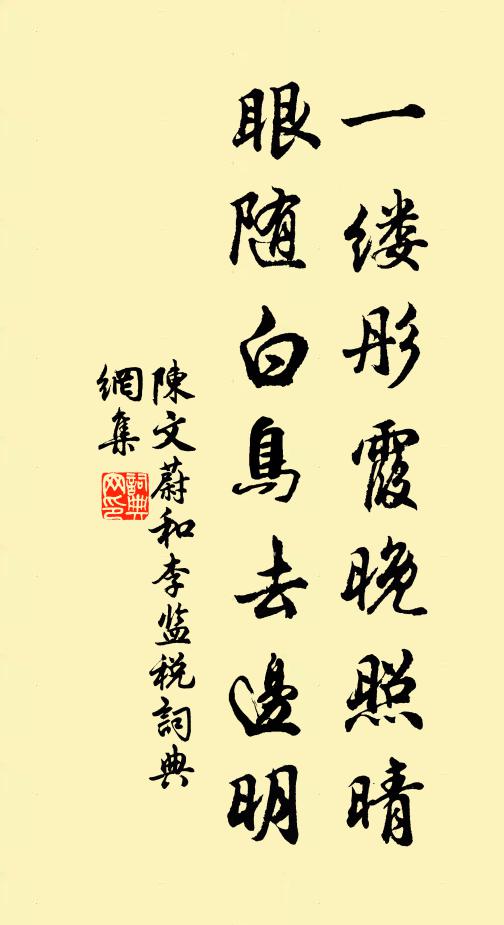 一缕彤霞晚照晴
眼随白鳥去邊明
陳文蔚和李监税詞典
網集
詞典网印